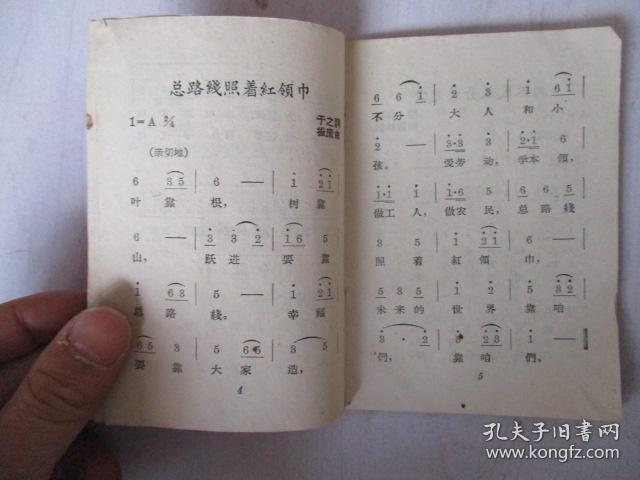 总路綫照着紅領巾
1=A 2/4
于之詞
(亲切地)
6 3 5 | 6 — | 1 2 1
叶 靠 根， 树 靠
6 — | 3 3 2 | 1 6 5
山， 跃 进 要 靠
1 6 3 | 5 — | 1 2 1
总 路 綫。 幸 福
6 5 3 | 5 6 5 | 3 5
要 靠 大 家 造，
4
6 6 1 | 2 3 | 1 6 1
不 分 大 人 和 小
2 — | 3·3 2 | 2·1 1
孩。 爱劳 动， 学本 領，
1·1 1 | 1·6 5 | 6 6 5
做工 人， 做农 民， 总 路 綫
3 5 | 1 2 1 | 6 —
照 着 紅 領 巾，
5 3 5 | 6 5 | 5 3 2
未来的 世 界 靠 咱
3 · 2 | 5 2 3 | 1 —
們， 靠 咱 們。
5
孔夫子旧书网
www.kongfz.com